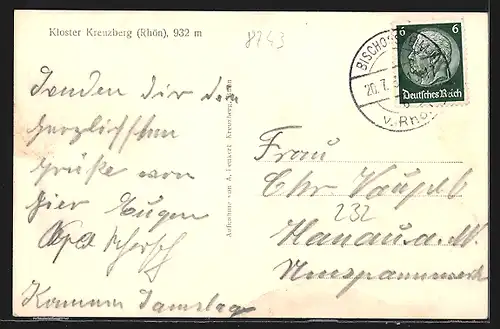 Kloster Kreuzberg (Rhön), 932 m
8743
Senden dir den
herzlichsten
Grüße von
hier Eugen
Opa
Kommen Samstag
Aufnahme von A. Kreuzberg, Rhön
BISCHOFS
20.7.
v. Rhön
6 6
Deutsches Reich
Frau
Chr. Vaupel
232
Hanau a. M.